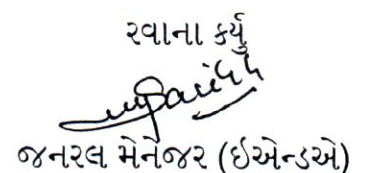 રવાના કર્યુ
જનરલ મેનેજર (ઇએન્ડએ)